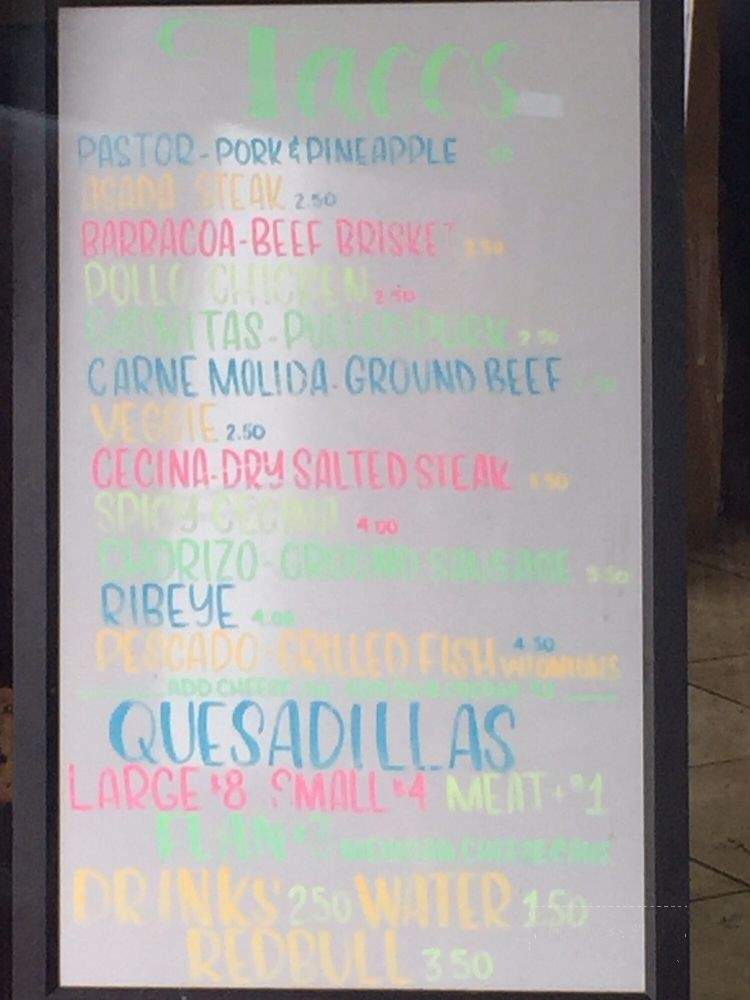 Tacos
PASTOR-PORK & PINEAPPLE
ASADA STEAK 2.50
BARBACOA-BEEF BRISKET
POLLO CHICKEN 2.50
CARNITAS-PULLED PORK 2.50
CARNE MOLIDA-GROUND BEEF
VEGGIE 2.50
CECINA-DRY SALTED STEAK
SPICY CECINA 4.00
CHORIZO-GROUND SAUSAGE
RIBEYE 4.00
PESCADO-GRILLED FISH 4.50
ADD CHEESE
QUESADILLAS
LARGE $8 SMALL $4 MEAT+$1
FLAN
DRINKS 250 WATER 1.50
REDBULL 350